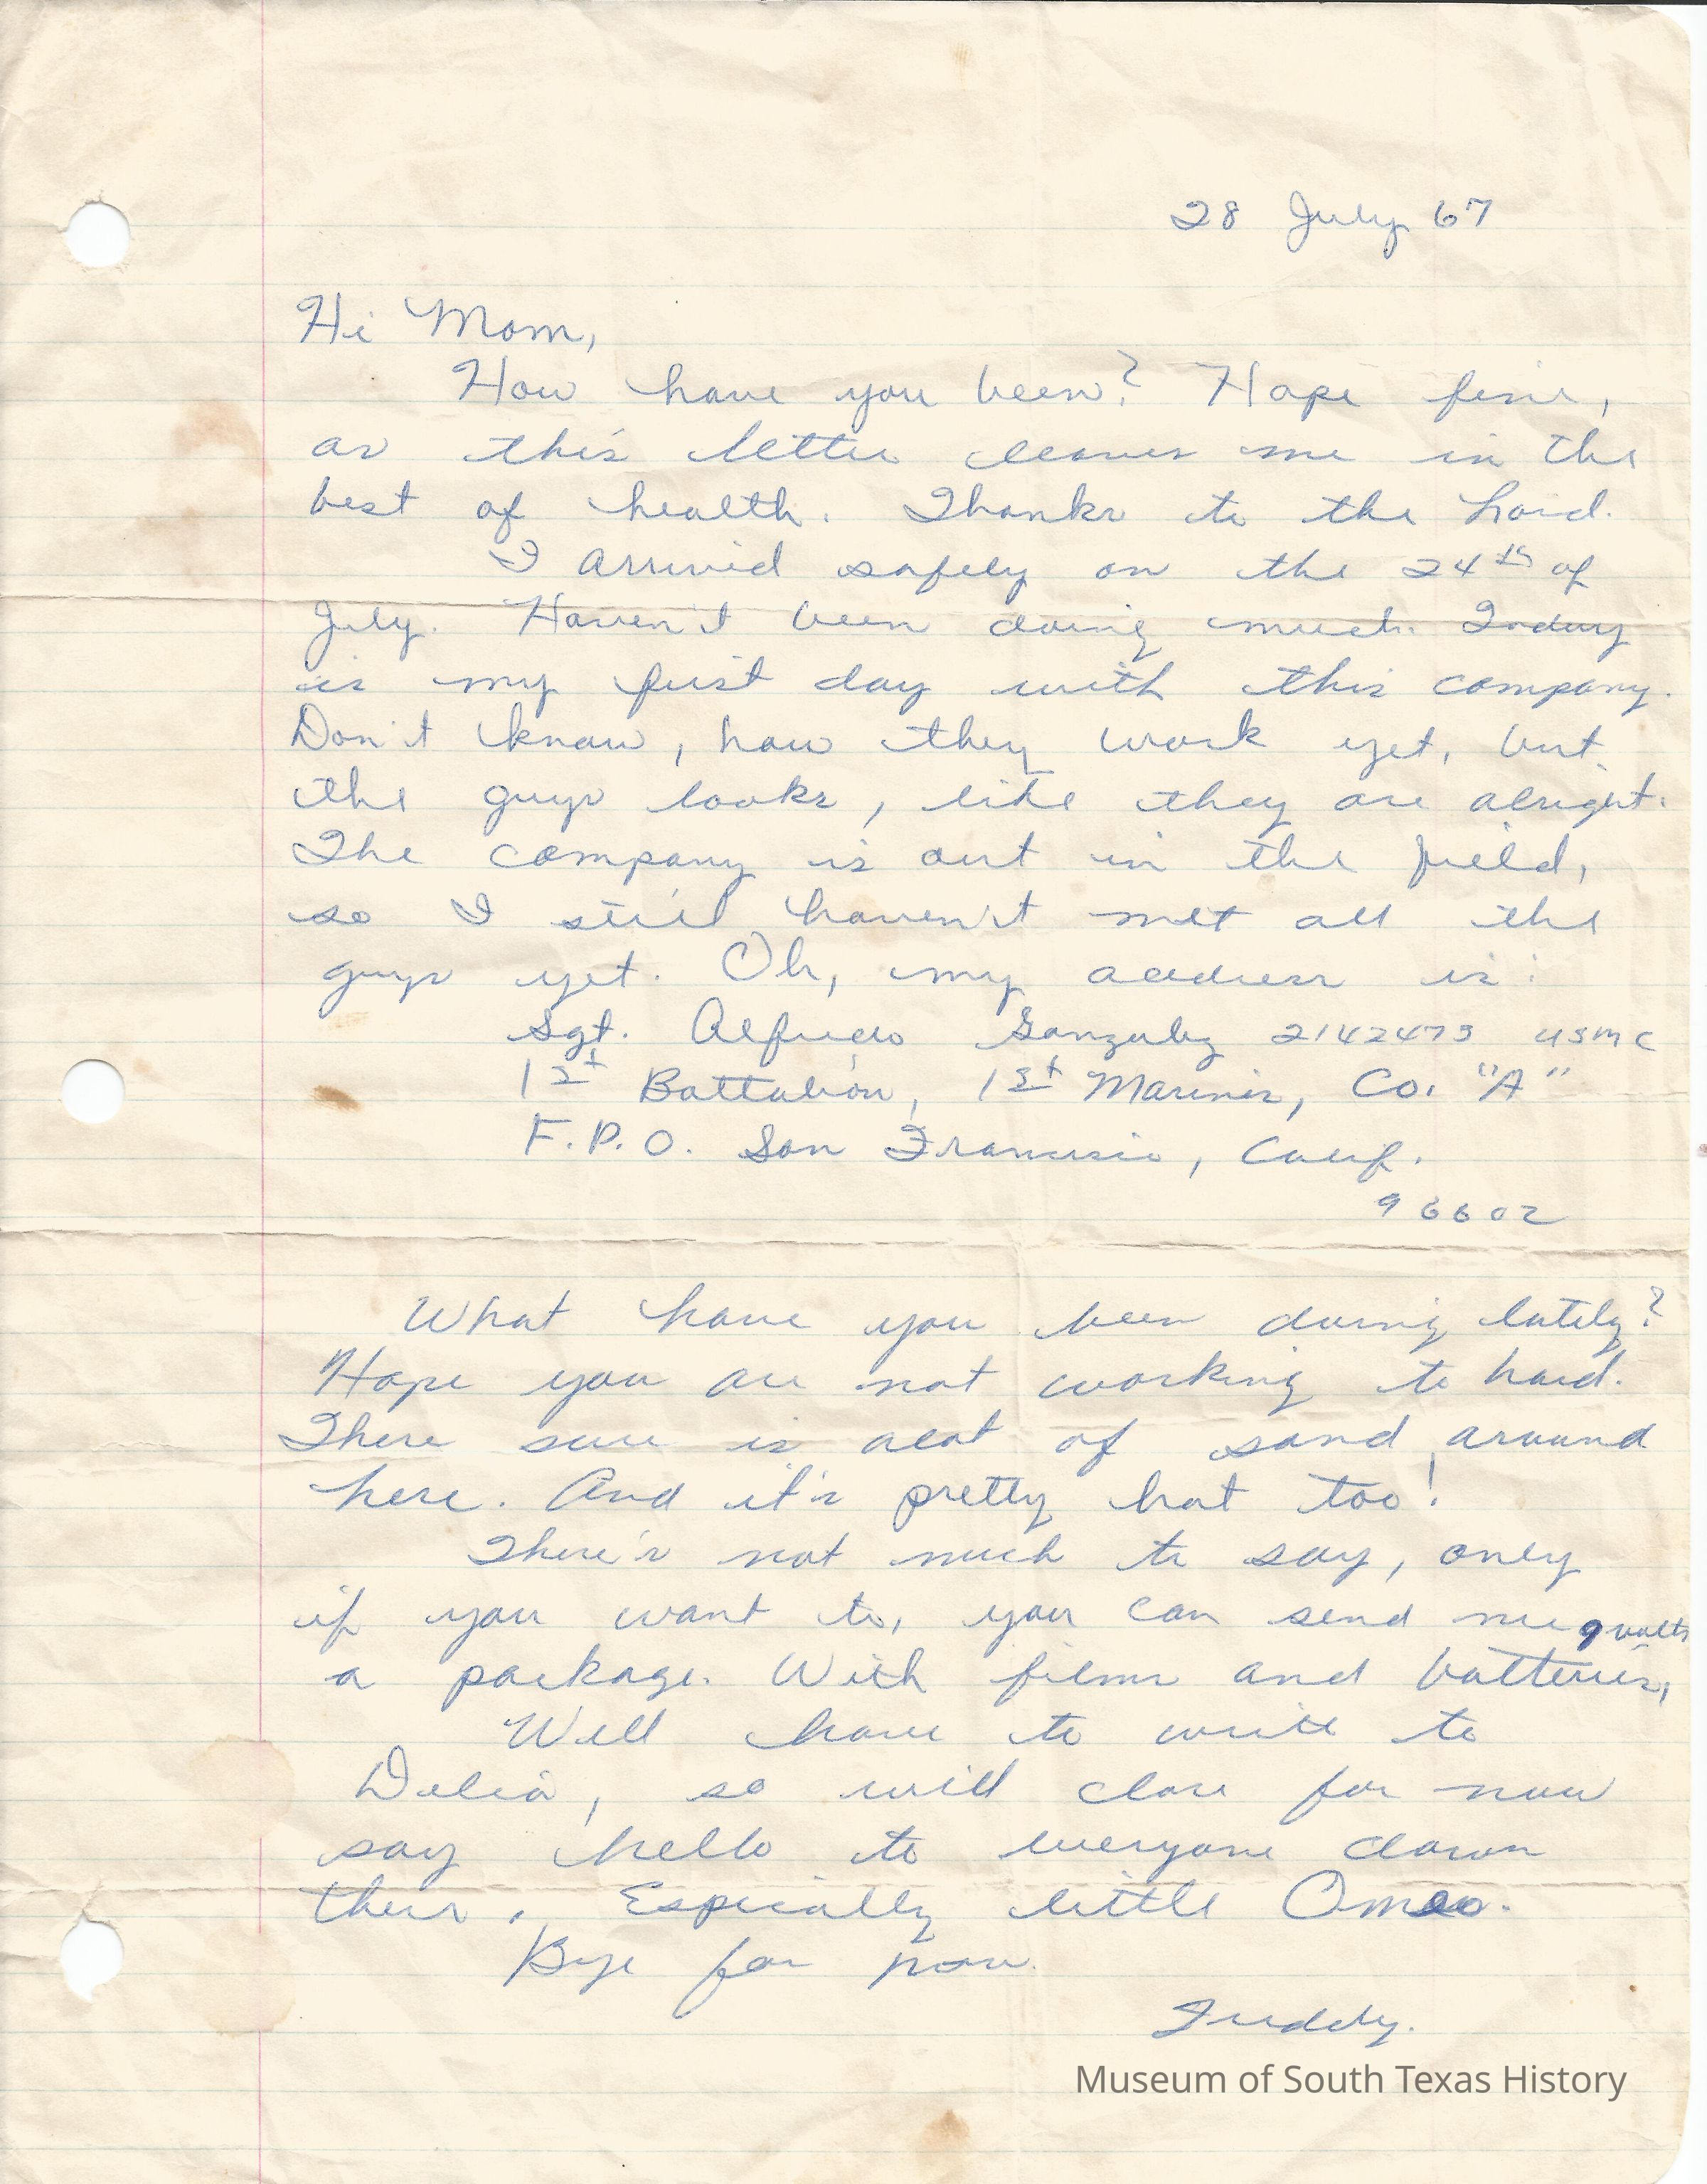 28 July 67
Hi Mom,
How have you been? Hope fine,
as this letter leaves me in the
best of health. Thanks to the Lord.
I arrived safely on the 24th of
July. Haven't been doing much. Today
is my first day with this company.
Don't know, how they work yet, but
the guys looks, like they are alright.
The company is out in the field,
so I still haven't met all the
guys yet. Oh, my address is:
Sgt. Alfredo Gonzalez 2142473 USMC
1st Battalion, 1st Marines, Co. "A"
F.P.O. San Francisco, Calif.
96602
What have you been doing lately?
Hope you are not working to hard.
There sure is alot of sand around
here. And it's pretty hot too!
There's not much to say, only
if you want to, you can send me 9 volts
a package. With films and batteries,
Well have to write to
Delia, so will close for now
say hello to everyone down
there. Especially little Omeo.
Bye for now.
Freddy.
Museum of South Texas History